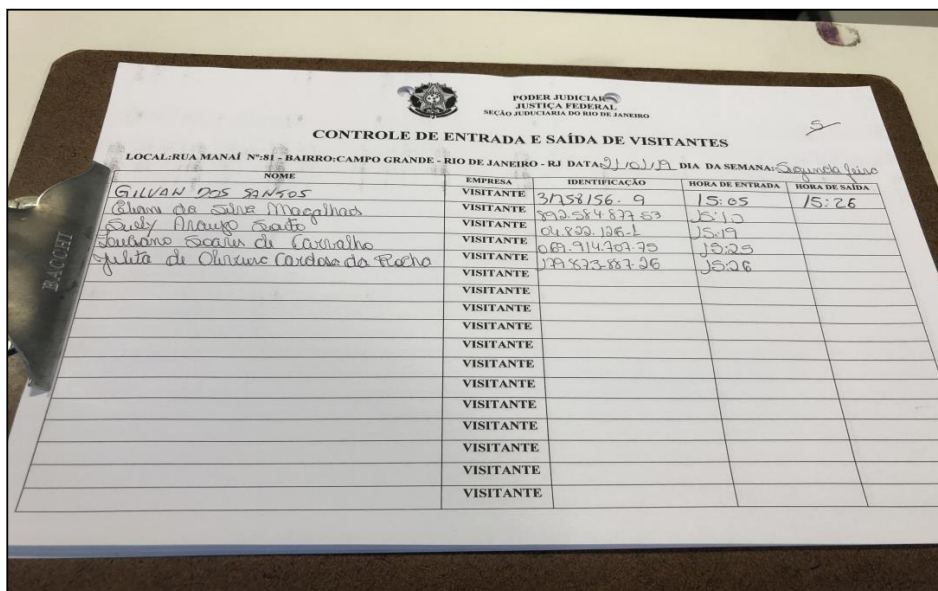 PODER JUDICIARI
JUSTIÇA FEDERAL
SEÇÃO JUDUCIARIA DO RIO DE JANEIRO
5
CONTROLE DE ENTRADA E SAÍDA DE VISITANTES
LOCAL:RUA MANAÍ Nº:81 - BAIRRO:CAMPO GRANDE - RIO DE JANEIRO - RJ DATA: 21/10/19 DIA DA SEMANA: Segunda feira
NOME EMPRESA IDENTIFICAÇÃO HORA DE ENTRADA HORA DE SAÍDA
GILVAN DOS SANTOS VISITANTE 31758156-9 15:05 15:26
Eliane da Silva Magalhães VISITANTE 892.584.877-53
Suely Araujo Souto VISITANTE 04.822.126-1 15:19
Luciano Soares de Carvalho VISITANTE 069.914.707-75 15:25
Julita de Oliveira Cardoso da Rocha VISITANTE 179.873.887-26 15:26
VISITANTE
VISITANTE
VISITANTE
VISITANTE
VISITANTE
VISITANTE
VISITANTE
VISITANTE
VISITANTE
VISITANTE
VISITANTE
VISITANTE
BACCHI